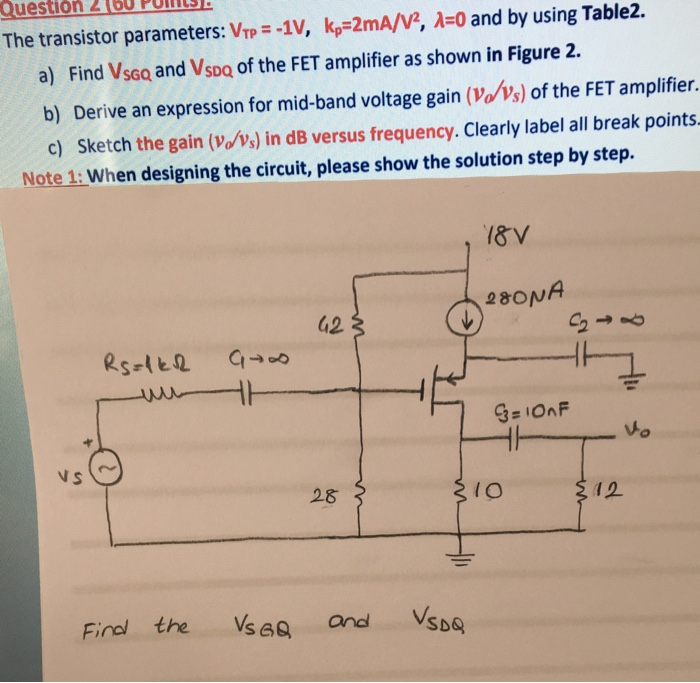 Question 2 (60 Points):
The transistor parameters: VTP = -1V, kp=2mA/V², λ=0 and by using Table2.
a) Find VSGQ and VSDQ of the FET amplifier as shown in Figure 2.
b) Derive an expression for mid-band voltage gain (Vo/Vs) of the FET amplifier.
c) Sketch the gain (Vo/Vs) in dB versus frequency. Clearly label all break points.
Note 1: When designing the circuit, please show the solution step by step.
18V
280NA
42
C2→∞
RS=1kΩ
C1→∞
C3=10nF
Vo
+
VS
28
10
12
Find the VSGQ and VSDQ